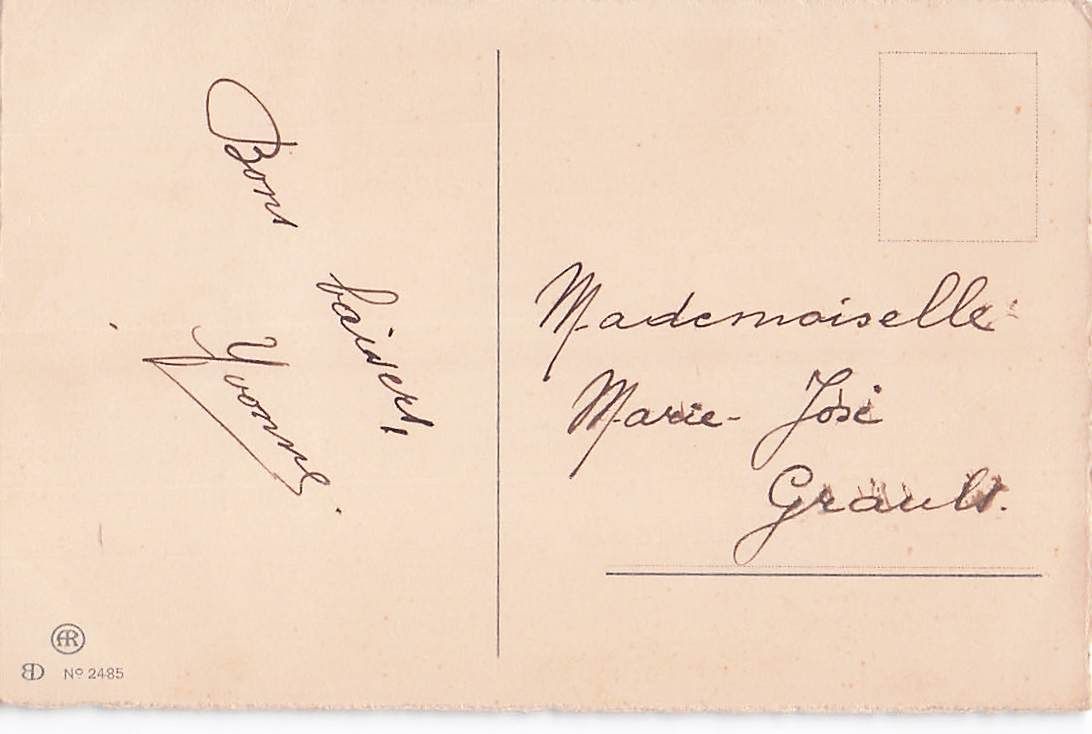 Bons
baisers
Yvonne.
Mademoiselle
Marie-José
Grault.
AR
BD Nº 2485